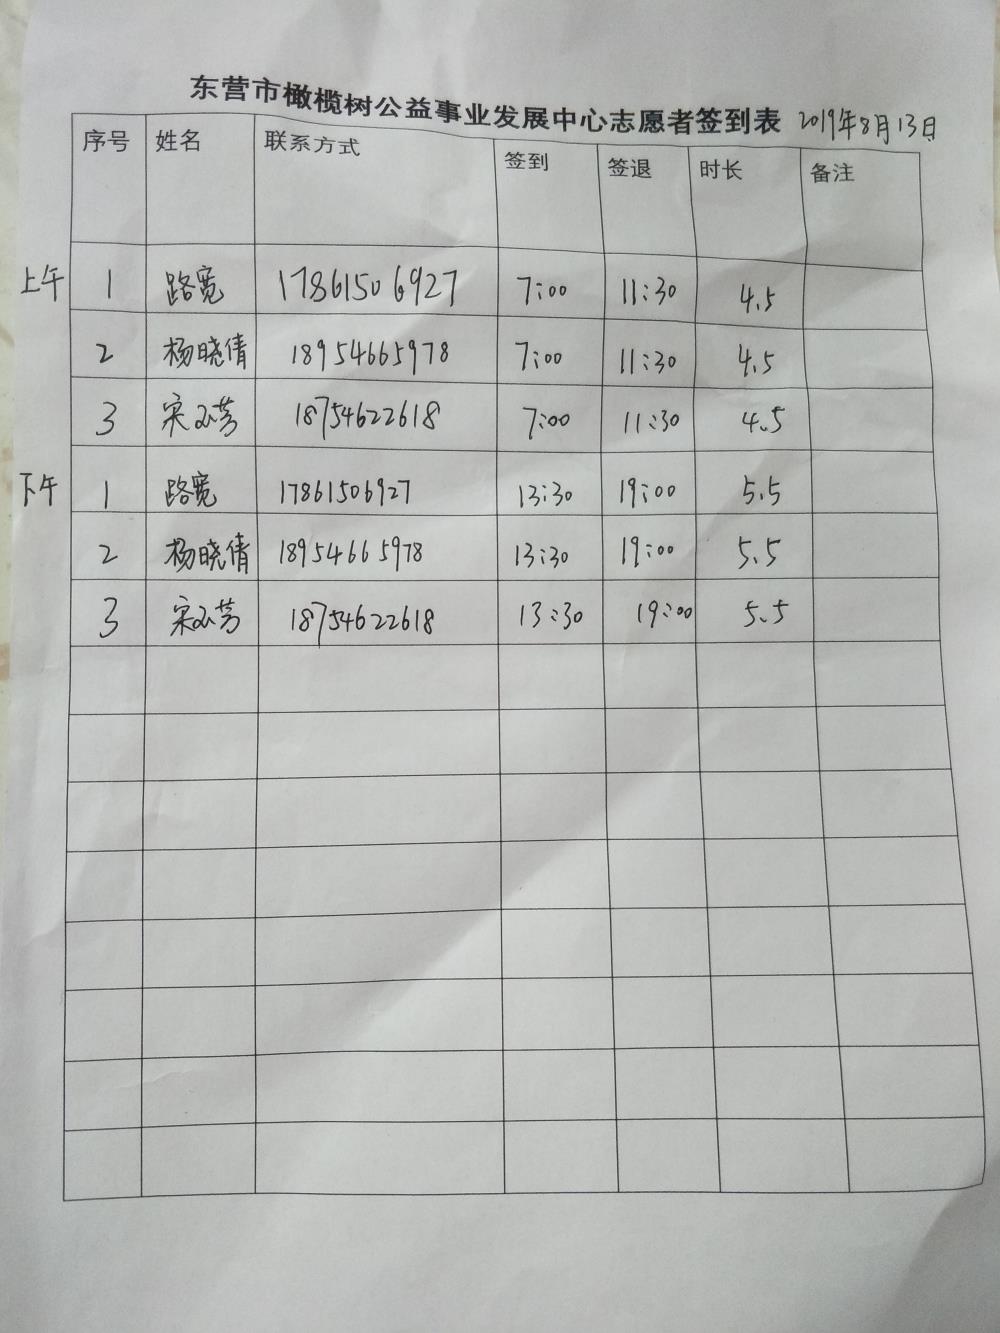 东营市橄榄树公益事业发展中心志愿者签到表 2019年8月13日
序号 姓名 联系方式 签到 签退 时长 备注
上午 1 路宽 17861506927 7:00 11:30 4.5
2 杨晓倩 18954665978 7:00 11:30 4.5
3 宋 芳 18754622618 7:00 11:30 4.5
下午 1 路宽 17861506927 13:30 19:00 5.5
2 杨晓倩 18954665978 13:30 19:00 5.5
3 宋 芳 18754622618 13:30 19:00 5.5